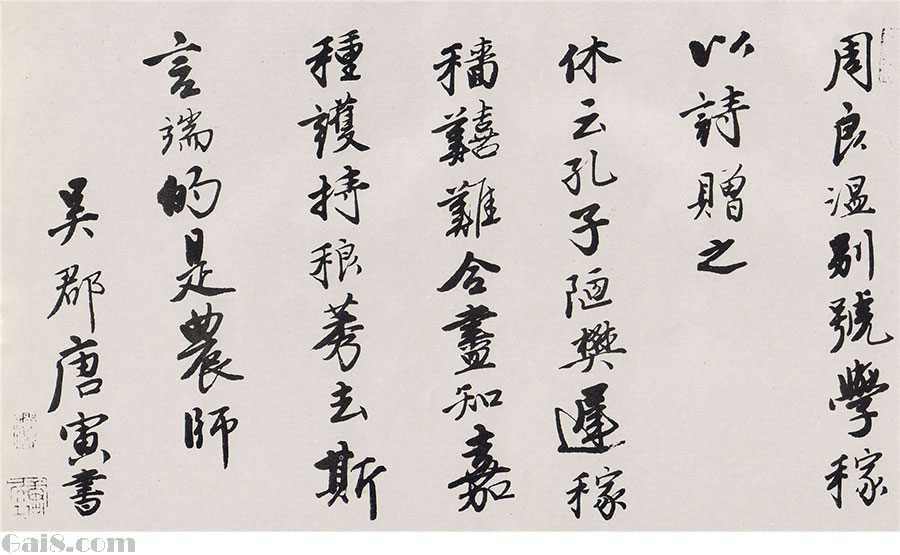 周良温別號學稼
以詩贈之
休云孔子陋樊遲稼
穡囏難合盡知嘉
種護持稂莠去斯
言端的是農師
吳郡唐寅書
Gai8.com